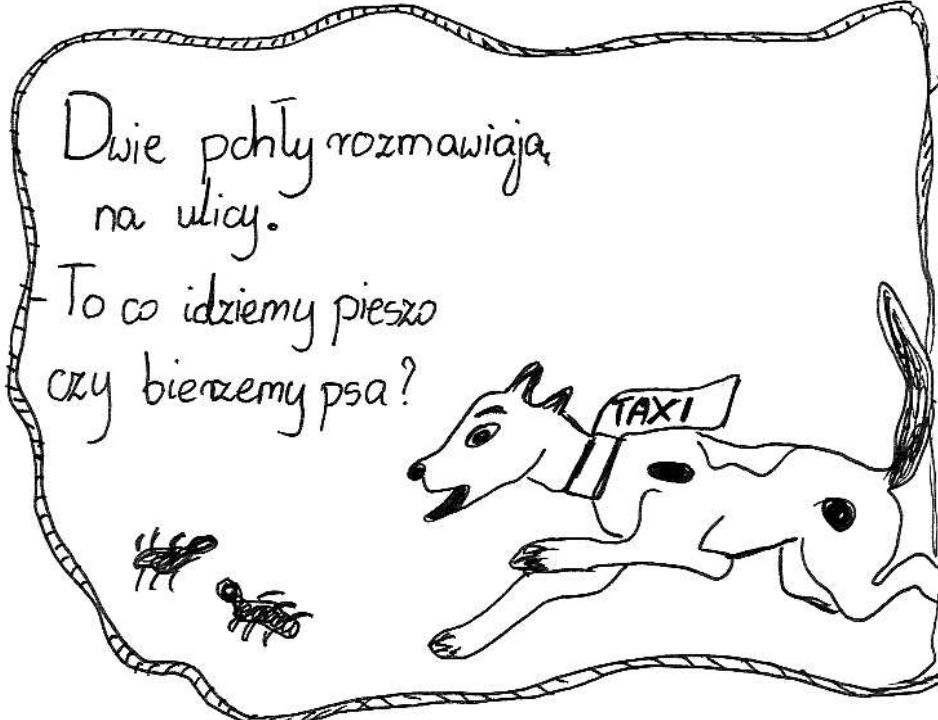 Dwie pchły rozmawiają
na ulicy.
- To co idziemy pieszo
czy bierzemy psa?
TAXI